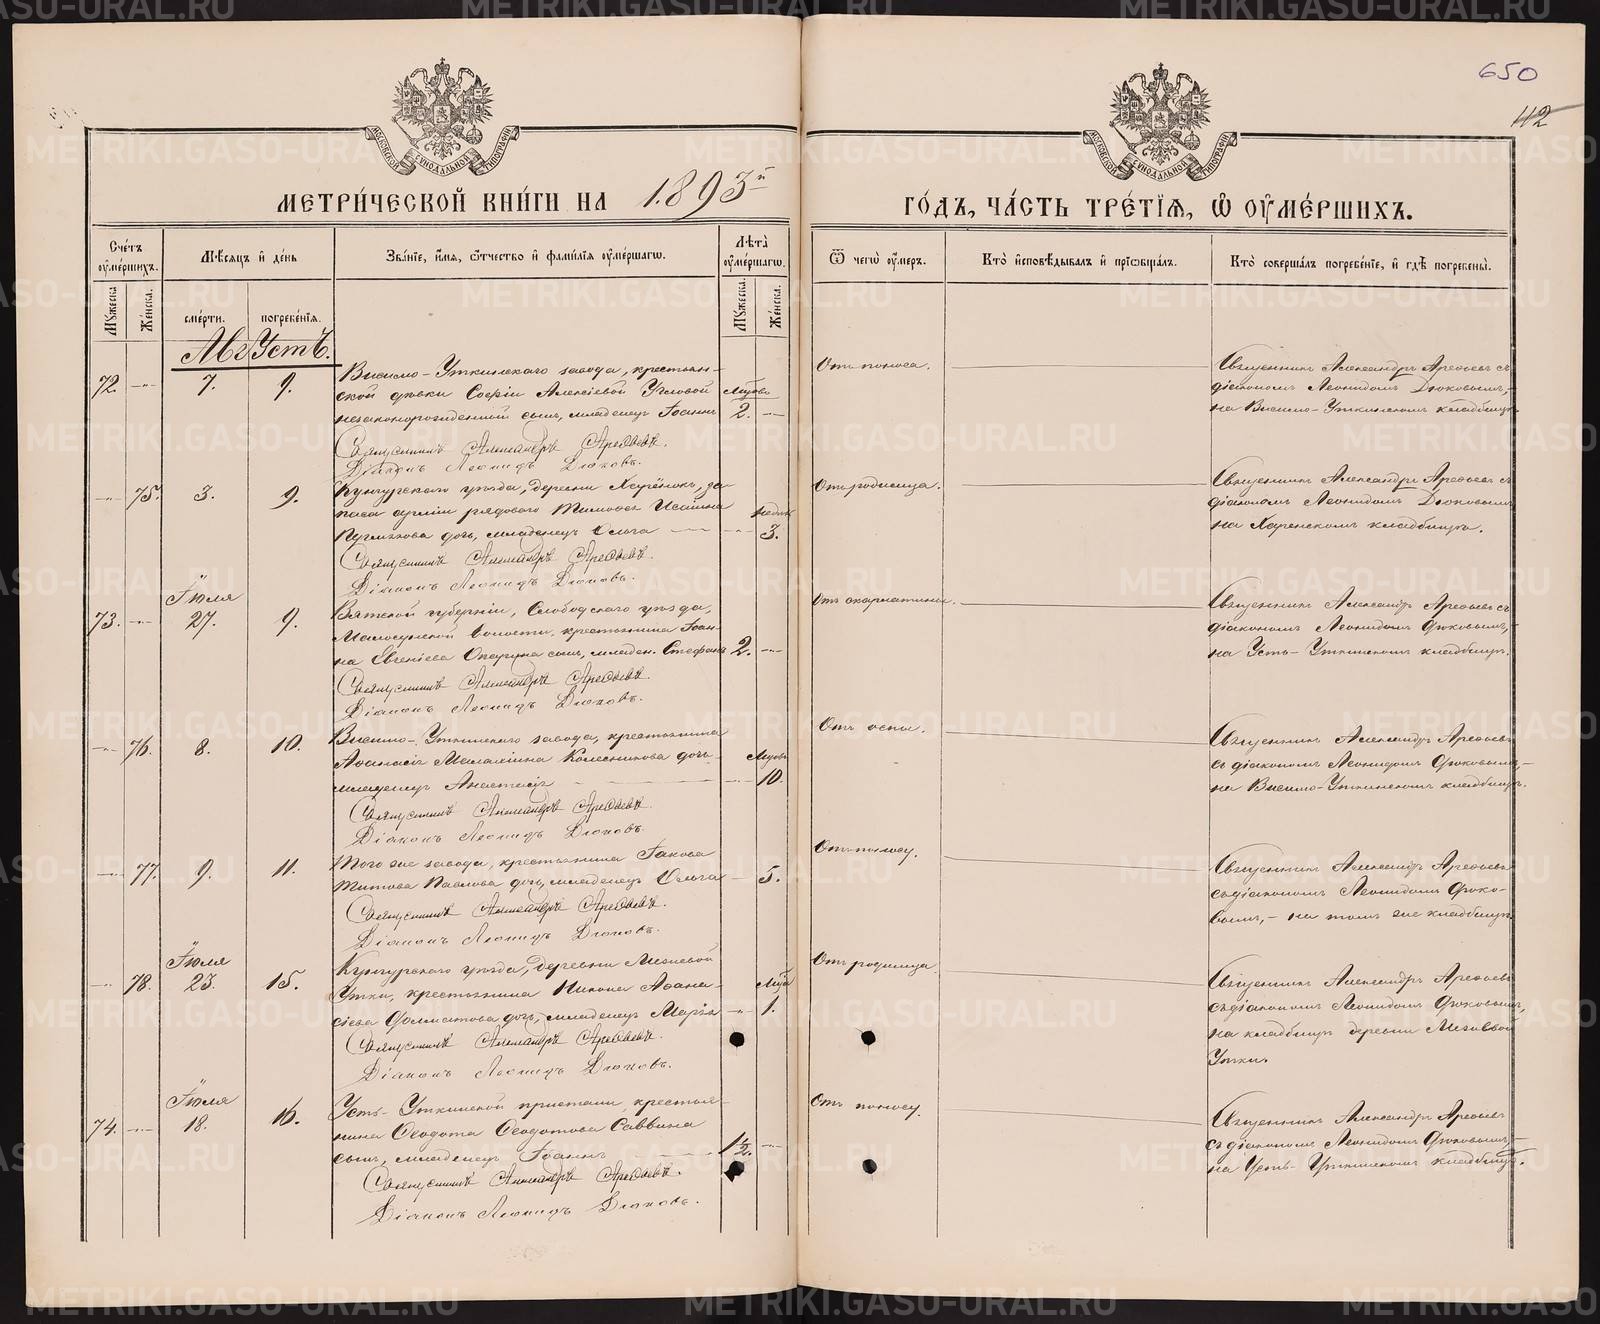 650
42
МОСКОВСКОЙ СУНОДАЛЬНОЙ ТИПОГРАФІИ
МОСКОВСКОЙ СУНОДАЛЬНОЙ ТИПОГРАФІИ
МЕТРИ́ЧЕСКОЙ КНИ́ГИ НА 1893й ГО́ДЪ, ЧА́СТЬ ТРЕ́ТІѦ, Ѡ ОУ҆МЕ́РШИХЪ.
Сче́тъ оумершихъ.
Мѣсяцъ и день
Званіе, имя, отчество и фамилія оумершагѡ.
Лѣта оумершагѡ.
Ѿ чегѡ оумеръ.
Кто исповѣдывалъ и пріобщалъ.
Кто совершалъ погребеніе, и гдѣ погребены.
Мужеска. Женска.
смерти. погребенія.
Мужеска. Женска.
Августъ.
72 — 7. 9.
Висимо-Уткинскаго завода, крестьян-
ской дѣвки Софіи Алексіевой Угловой
незаконорожденный сынъ, младенецъ Іоаннъ
2. —
Отъ поноса.
Священникъ Александръ Арефьевъ съ
діакономъ Леонидомъ Дюковымъ,-
на Висимо-Уткинскомъ кладбищѣ.
Священникъ Александръ Арефьевъ.
Діаконъ Леонидъ Дюковъ.
— 75. 3. 9.
Кунгурскаго уѣзда, деревни за-
паса арміи рядового Тимофея Исаина
дочь, младенецъ Ольга —
— 3.
Отъ родимца.
Священникъ Александръ Арефьевъ съ
діакономъ Леонидомъ Дюковымъ
на Харенскомъ кладбищѣ.
Священникъ Александръ Арефьевъ.
Діаконъ Леонидъ Дюковъ.
73. — Іюля 27. 9.
Вятской губерніи, Слободскаго уѣзда,
волости, крестьянина Іоан-
на Евгеніева Опарина сынъ, младен. Стефанъ
2. —
Отъ скарлатины.
Священникъ Александръ Арефьевъ съ
діакономъ Леонидомъ Дюковымъ,-
на Усть-Уткинскомъ кладбищѣ.
Священникъ Александръ Арефьевъ.
Діаконъ Леонидъ Дюковъ.
— 76. 8. 10.
Висимо-Уткинскаго завода, крестьянина
Афанасія Колесникова дочь
младенецъ Анастасія —
— 10.
Отъ оспы.
Священникъ Александръ Арефьевъ
съ діакономъ Леонидомъ Дюковымъ,-
на Висимо-Уткинскомъ кладбищѣ.
Священникъ Александръ Арефьевъ.
Діаконъ Леонидъ Дюковъ.
— 77. 9. 11.
Того же завода, крестьянина Іакова
Титова Павлова дочь, младенецъ Ольга
— 5.
Отъ поносу.
Священникъ Александръ Арефьевъ
съ діакономъ Леонидомъ Дюко-
вымъ,- на томъ же кладбищѣ.
Священникъ Александръ Арефьевъ.
Діаконъ Леонидъ Дюковъ.
— 78. Іюля 23. 15.
Кунгурскаго уѣзда, деревни Межевой
Утки, крестьянина Никона Афана-
сіева дочь, младенецъ Марія
— 1.
Отъ родимца.
Священникъ Александръ Арефьевъ
съ діакономъ Леонидомъ Дюковымъ,
на кладбищѣ деревни Межевой
Утки.
Священникъ Александръ Арефьевъ.
Діаконъ Леонидъ Дюковъ.
74. — Іюля 18. 16.
Усть-Уткинской пристани, крестья-
нина Феодота Феодотова Саввина
сынъ, младенецъ Іоаннъ —
1½. —
Отъ поносу.
Священникъ Александръ Арефьевъ
съ діакономъ Леонидомъ Дюковымъ—
на Усть-Уткинскомъ кладбищѣ.
Священникъ Александръ Арефьевъ.
Діаконъ Леонидъ Дюковъ.
METRIKI.GASO-URAL.RU